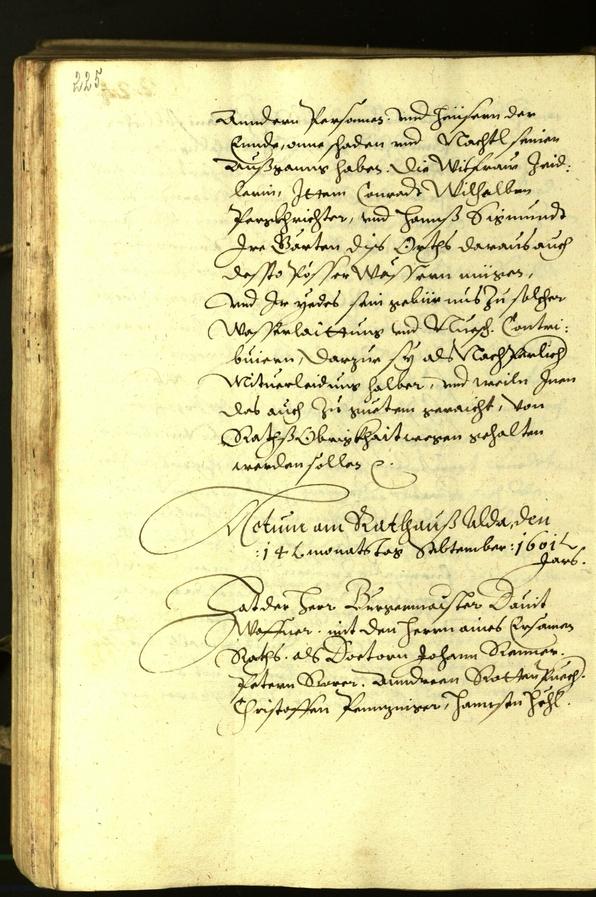 225
Anndern Personen, und Heüsern der
Ennde, onne schaden und Nachtl seinen
Außganng haben. Die Witfraw Zeid:
lerin, Ittem Conradt Wilhalben
Pergkhrichter, und Hannß Sigmundt
Ire Gärten diß Orths daraus auch
dessto Pösser Wässern mügen,
und Ir yedes sein gebürnus zu solcher
Wasserlaittung und Contri:
buiern, Darzue sy als Nachperlich
Mituerleidung halber, und weiln Inen
das auch zu guetem geraicht, von
Rathß Obrigkhait wegen gehalten
werden sollen
Actum am Rathauß Alda, den
:14: monats tag Sebtember: 1601
Jars.
Hat der Herr Burgermaister Dauit
Waffner. mit den Herrn aines Ersamen
Raths. als Doctorn Johann Renner.
Petern Anndreen Rottenpuech.
Christoffen Hannsen